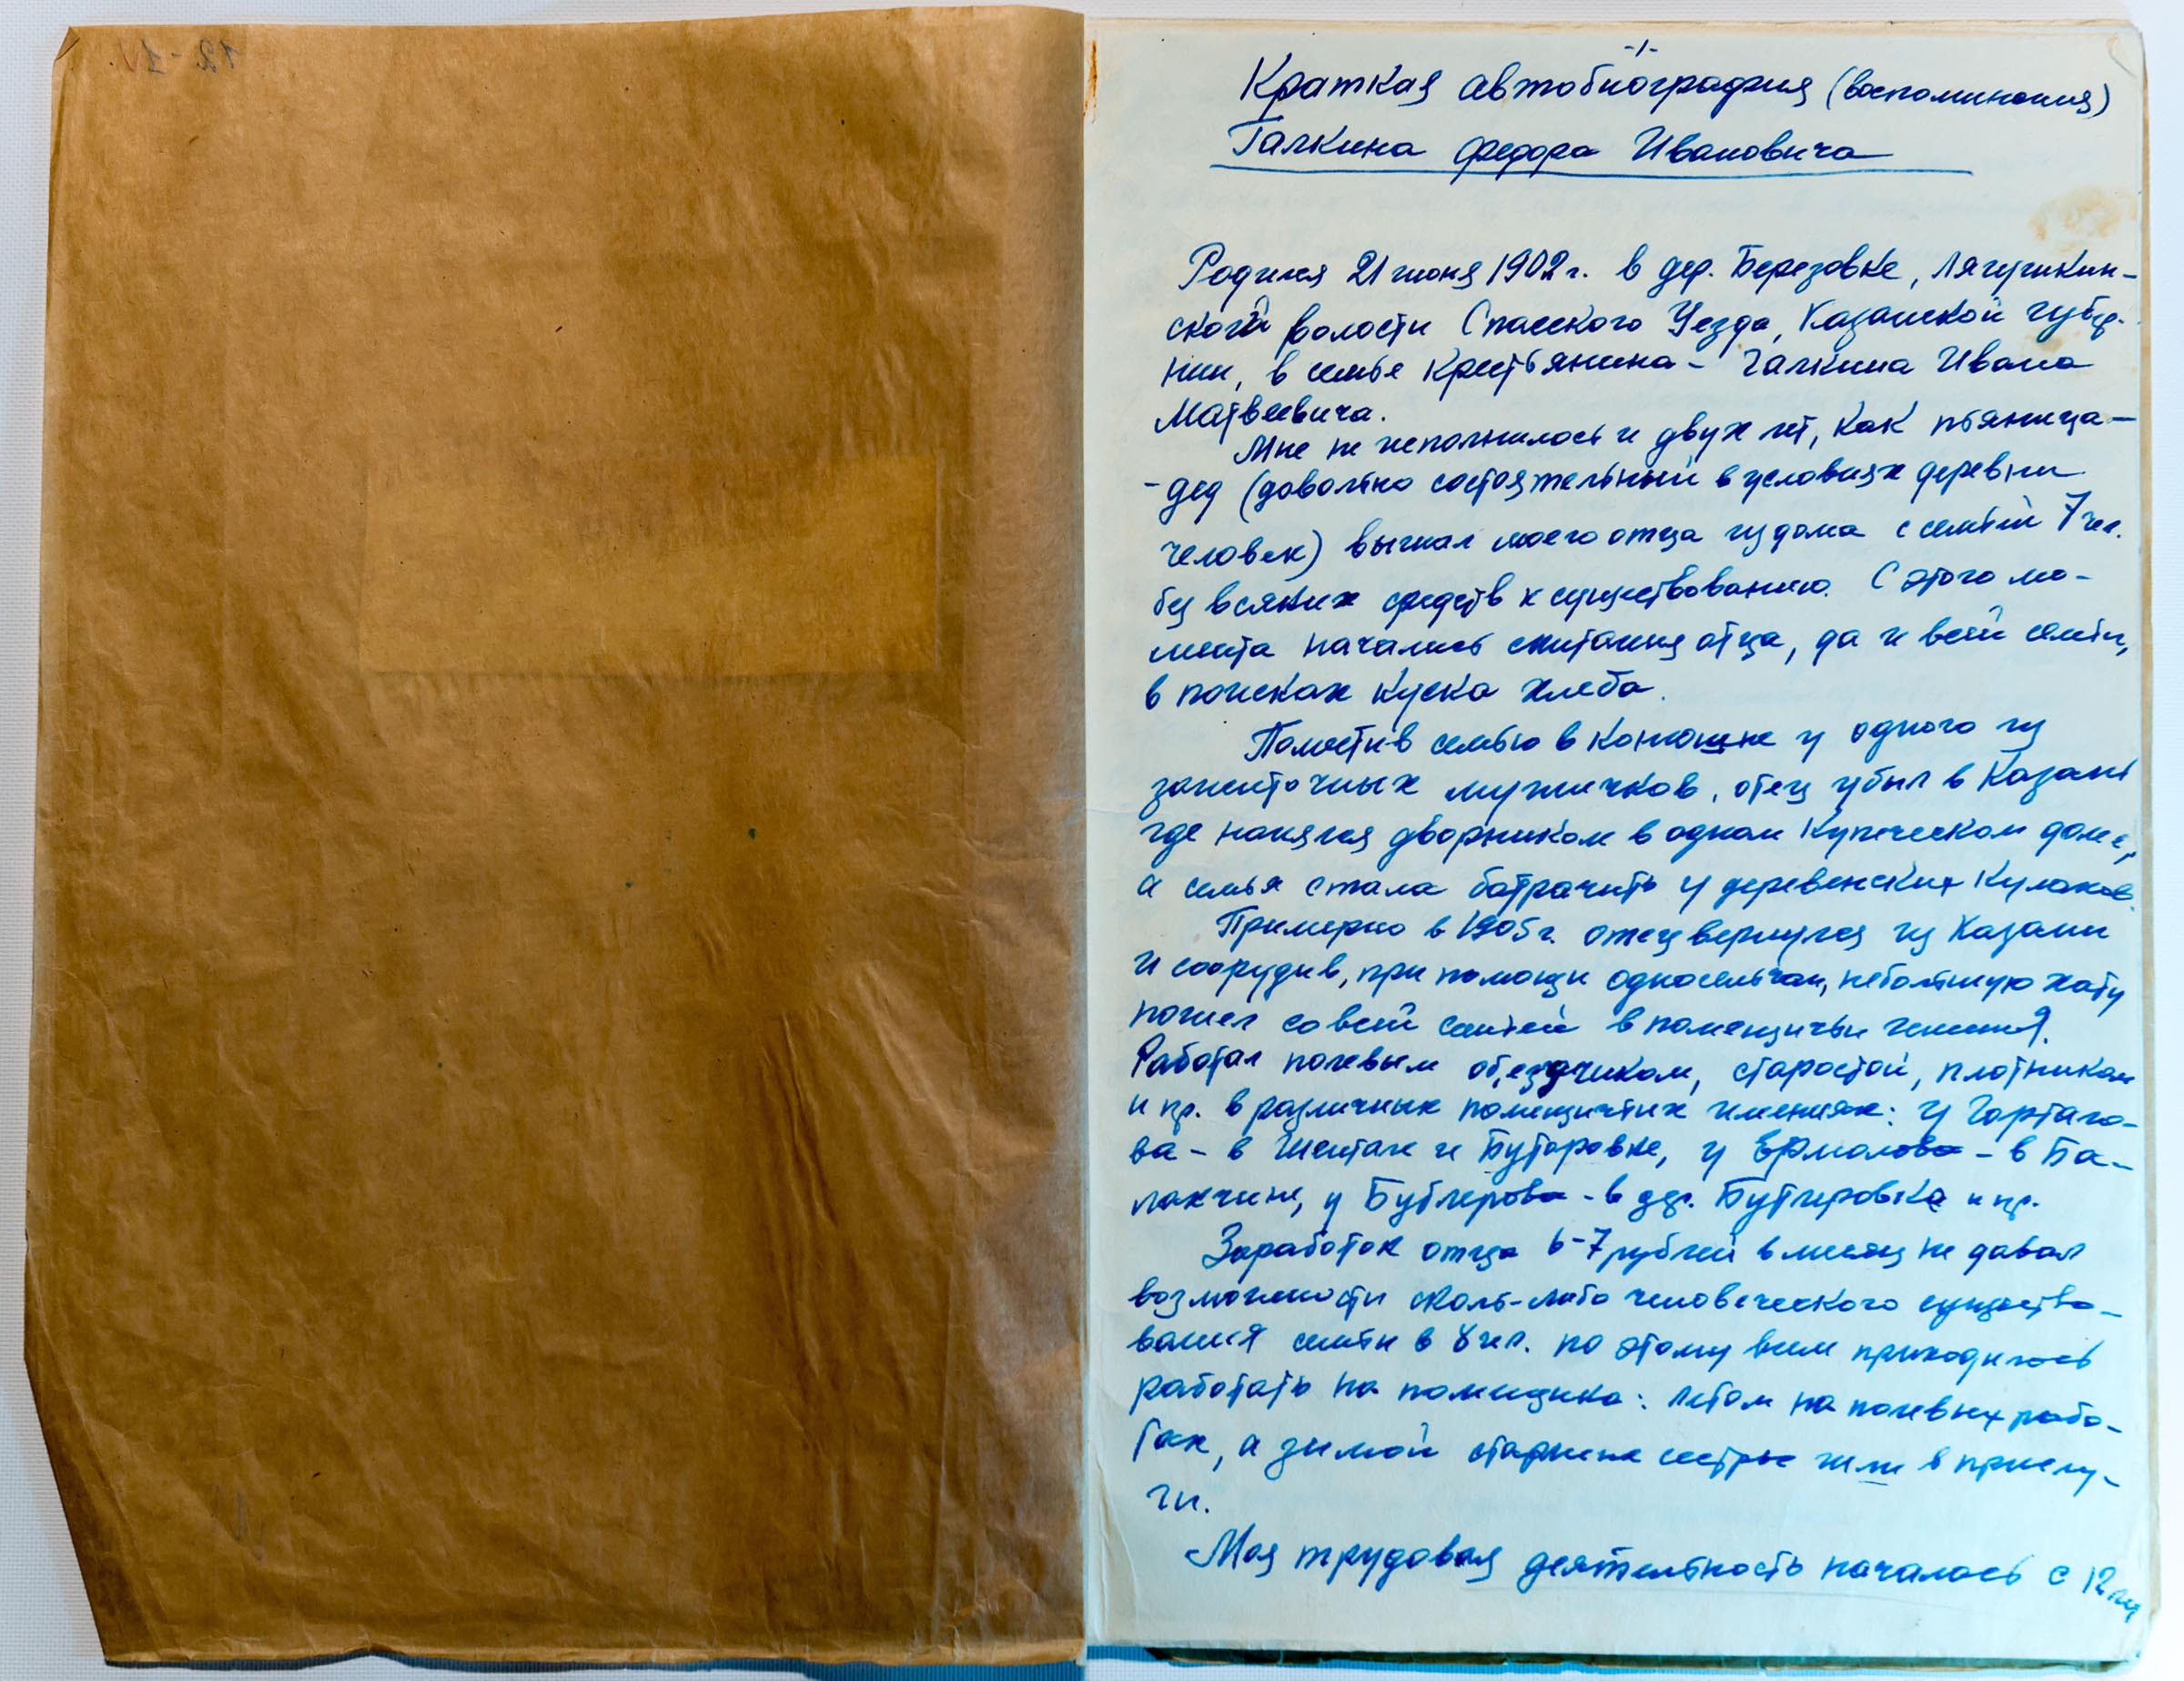 -1-
Краткая автобиография (воспоминания)
Галкина Федора Ивановича
Родился 21 июня 1902 г. в дер. Березовке,
ской волости Спасского Уезда, Казанской губер-
нии, в семье крестьянина - Галкина Ивана
Матвеевича.
Мне не исполнилось и двух лет, как пьяница-
-дед (довольно состоятельный в условиях деревни
человек) выгнал моего отца из дома с семьей 7 чел.
без всяких средств к существованию. С этого мо-
мента начались скитания отца, да и всей семьи,
в поисках куска хлеба.
Поместив семью в конюшне у одного из
зажиточных мужичков, отец убыл в Казань
где нанялся дворником в одном купеческом доме,
а семья стала батрачить у деревенских кулаков.
Примерно в 1905 г. отец вернулся из Казани
и соорудив, при помощи односельчан, небольшую хату
пошел со всей семьей в помещичьи имения.
Работал полевым об,ездчиком, старостой, плотником
и пр. в различных помещичьих имениях: у
ва - в Шентале и Буторовке, у Ермолова - в Ба-
лакчине, у Бутлерова - в дер. Бутлеровка и пр.
Заработок отца 6-7 рублей в месяц не давал
возможности сколь-либо человеческого существо-
вания семьи в 8 чел. по этому всем приходилось
работать на помещика: летом на полевых рабо-
тах, а зимой старшие сестры жили в прислу-
ги.
Моя трудовая деятельность началась с 12 лет
12-1